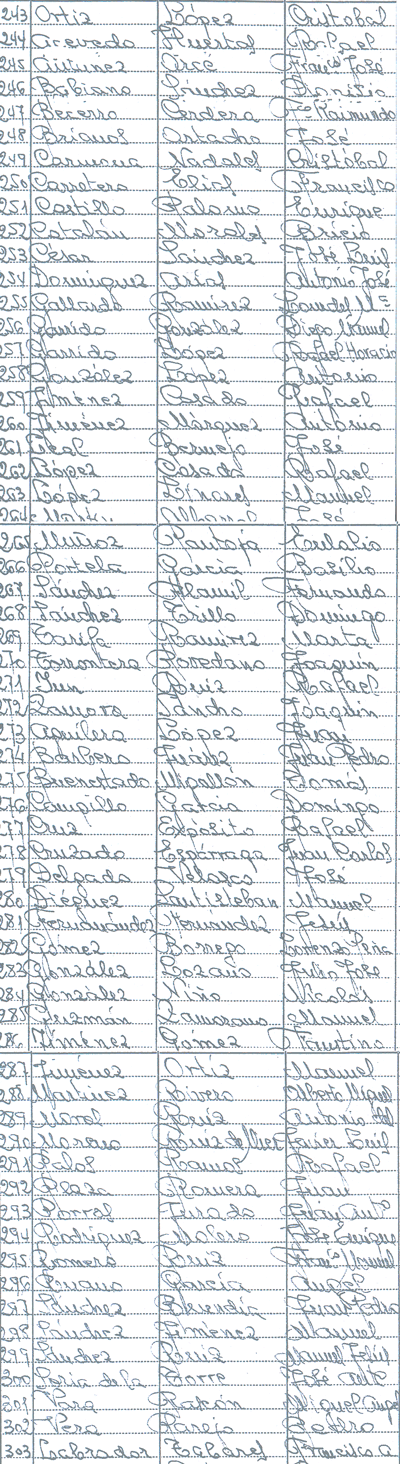 243 Ortiz López Cristobal
244 Acevedo Huertas Rafael
245 Antúnez Arsé Franco José
246 Babiano Sánchez Dionisio
247 Becerro Cerdera Raimundo
248 Briones José
249 Carmona Nadales Cristóbal
250 Carretero Elías Francisco
251 Castillo Palomo Enrique
252 Catalán Morales Bricio
253 César Sánchez José Luis
254 Domínguez Arias Antonio José
255 Gallardo Ramírez
256 Garrido González Diego Manuel
257 Garrido López Rafael Horacio
258 González López Antonio
259 Jiménez Rafael
260 Jiménez Márquez Antonio
261 Leal Bermejo José
262 López Casado Rafael
263 López Linares Manuel
264
265 Muñoz Pantoja Eulalio
266 Portela García Basilio
267 Sánchez Fernando
268 Sánchez Trillo Domingo
269 Ramírez Marta
270 Torrontera Joaquín
271 Ruiz Rafael
272 Zamora Sancho Joaquín
273 Aguilera López Juan
274 Barbero Juárez Juan Pedro
275 Buenestado Migallón Tomás
276 Campillo García Domingo
277 Cruz Expósito Rafael
278 Cruzado Espárraga Juan Carlos
279 Delgado Velasco José
280 Diéguez Santisteban Manuel
281 Fernández Hernández Jesús
282 Gómez Borrego
283 González Lozano Julio José
284 González Niño Nicolás
285 Guzmán Zamorano Manuel
286 Jiménez Gómez Faustino
287 Jiménez Ortiz Manuel
288 Martínez Rivero Alberto Miguel
289 Moral Ruiz Antonio
290 Moreno Javier Luis
291 Palos Ramos Rafael
292 Plaza Romera Juan
293 Porras Jurado
294 Rodríguez Molero José Enrique
295 Romero Ruiz Franco Manuel
296 Ruano García Angel
297 Sánchez Buendía Juan Pedro
298 Sánchez Jiménez Manuel
299 Sánchez Ruiz Manuel Jesús
300 Soria de la Torre José
301 Vara Rascón Miguel Angel
302 Vera Parejo Pedro
303 Labrador Tabares Francisco A